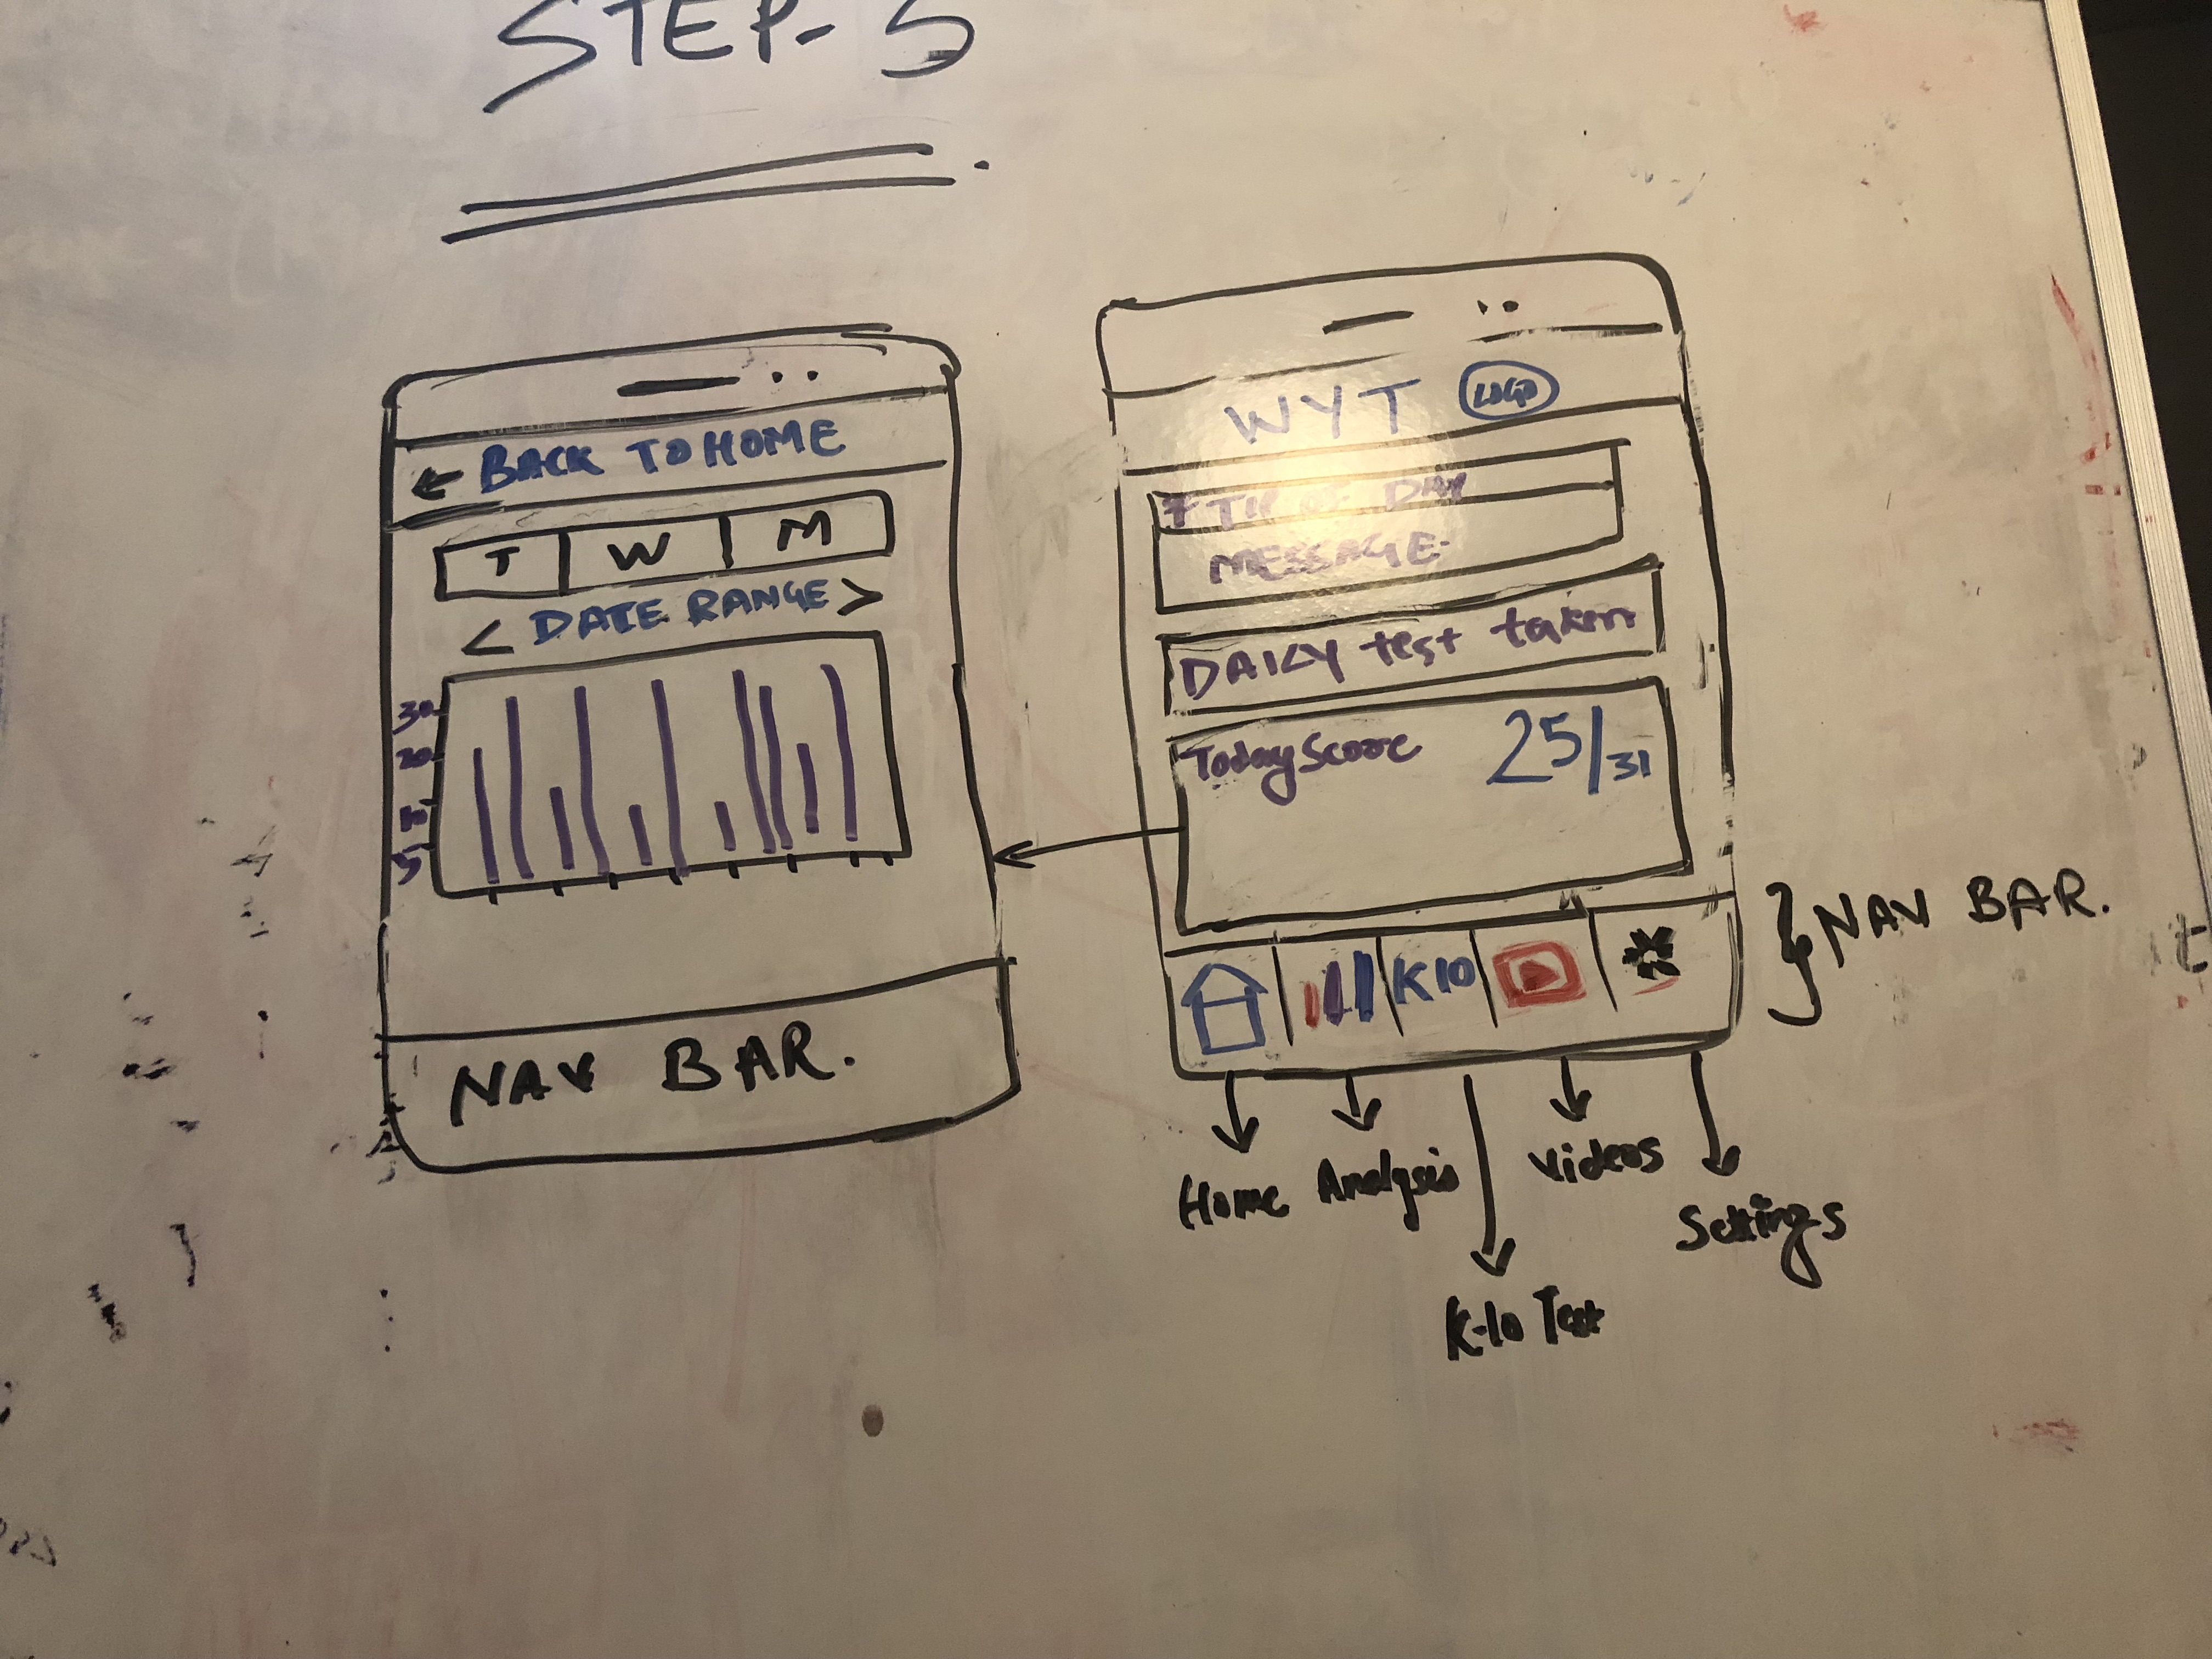 STEP-5
← BACK TO HOME
T W M
< DATE RANGE >
30
20
10
5
NAV BAR.
WYT LOGO
TIP OF DAY
MESSAGE.
DAILY test taken
Today Score 25/31
K10
NAV BAR.
Home Analysis Videos
Settings
K-10 Test